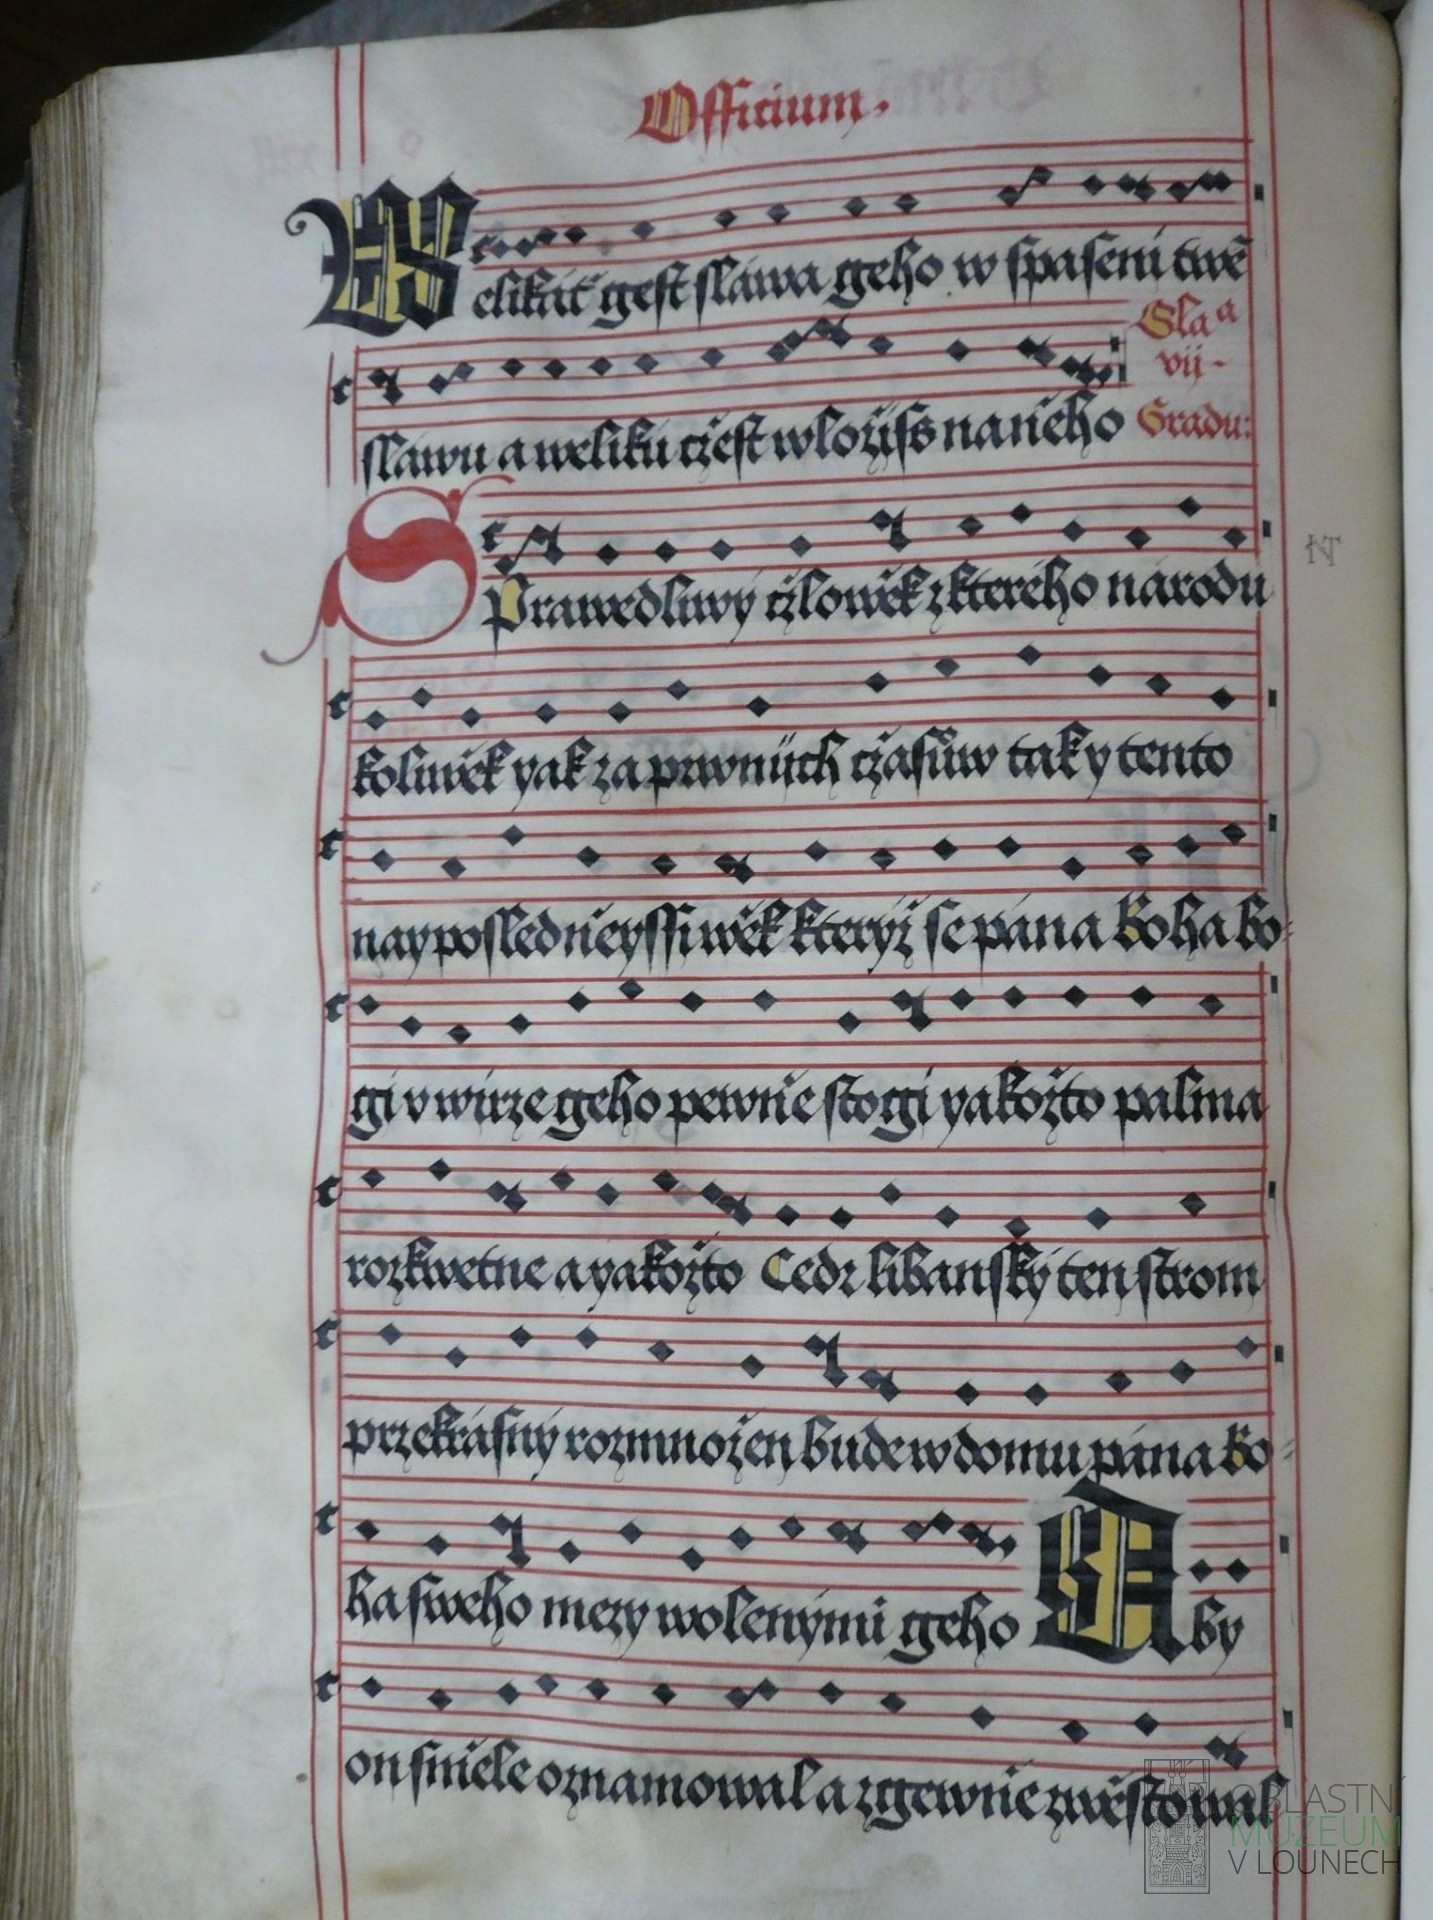 Officium.
Welikáť gest sláwa geho w spaseni twē
Sla a
vij.
sláwu a weliku cžest wložiſs na ňeho Gradu:
S
Prawedliwý cžlowěk z kteréhо národu
koliwěk yak za prwnijch cžasůw taky tento
nayposledněyssi wěk kterýž se pána Boha bo-
gi v wirze geho pewně stogi yakožto palma
rozkwetne a yakožto Cedr libanský ten strom
przekrásný rozmnožen bude w domu pána Bo-
ha sweho mezy wolenými geho Aby
on směle oznamowal a zgewně zwěstowal
NT
OBLASTNÍ
MUZEUM
V LOUNECH